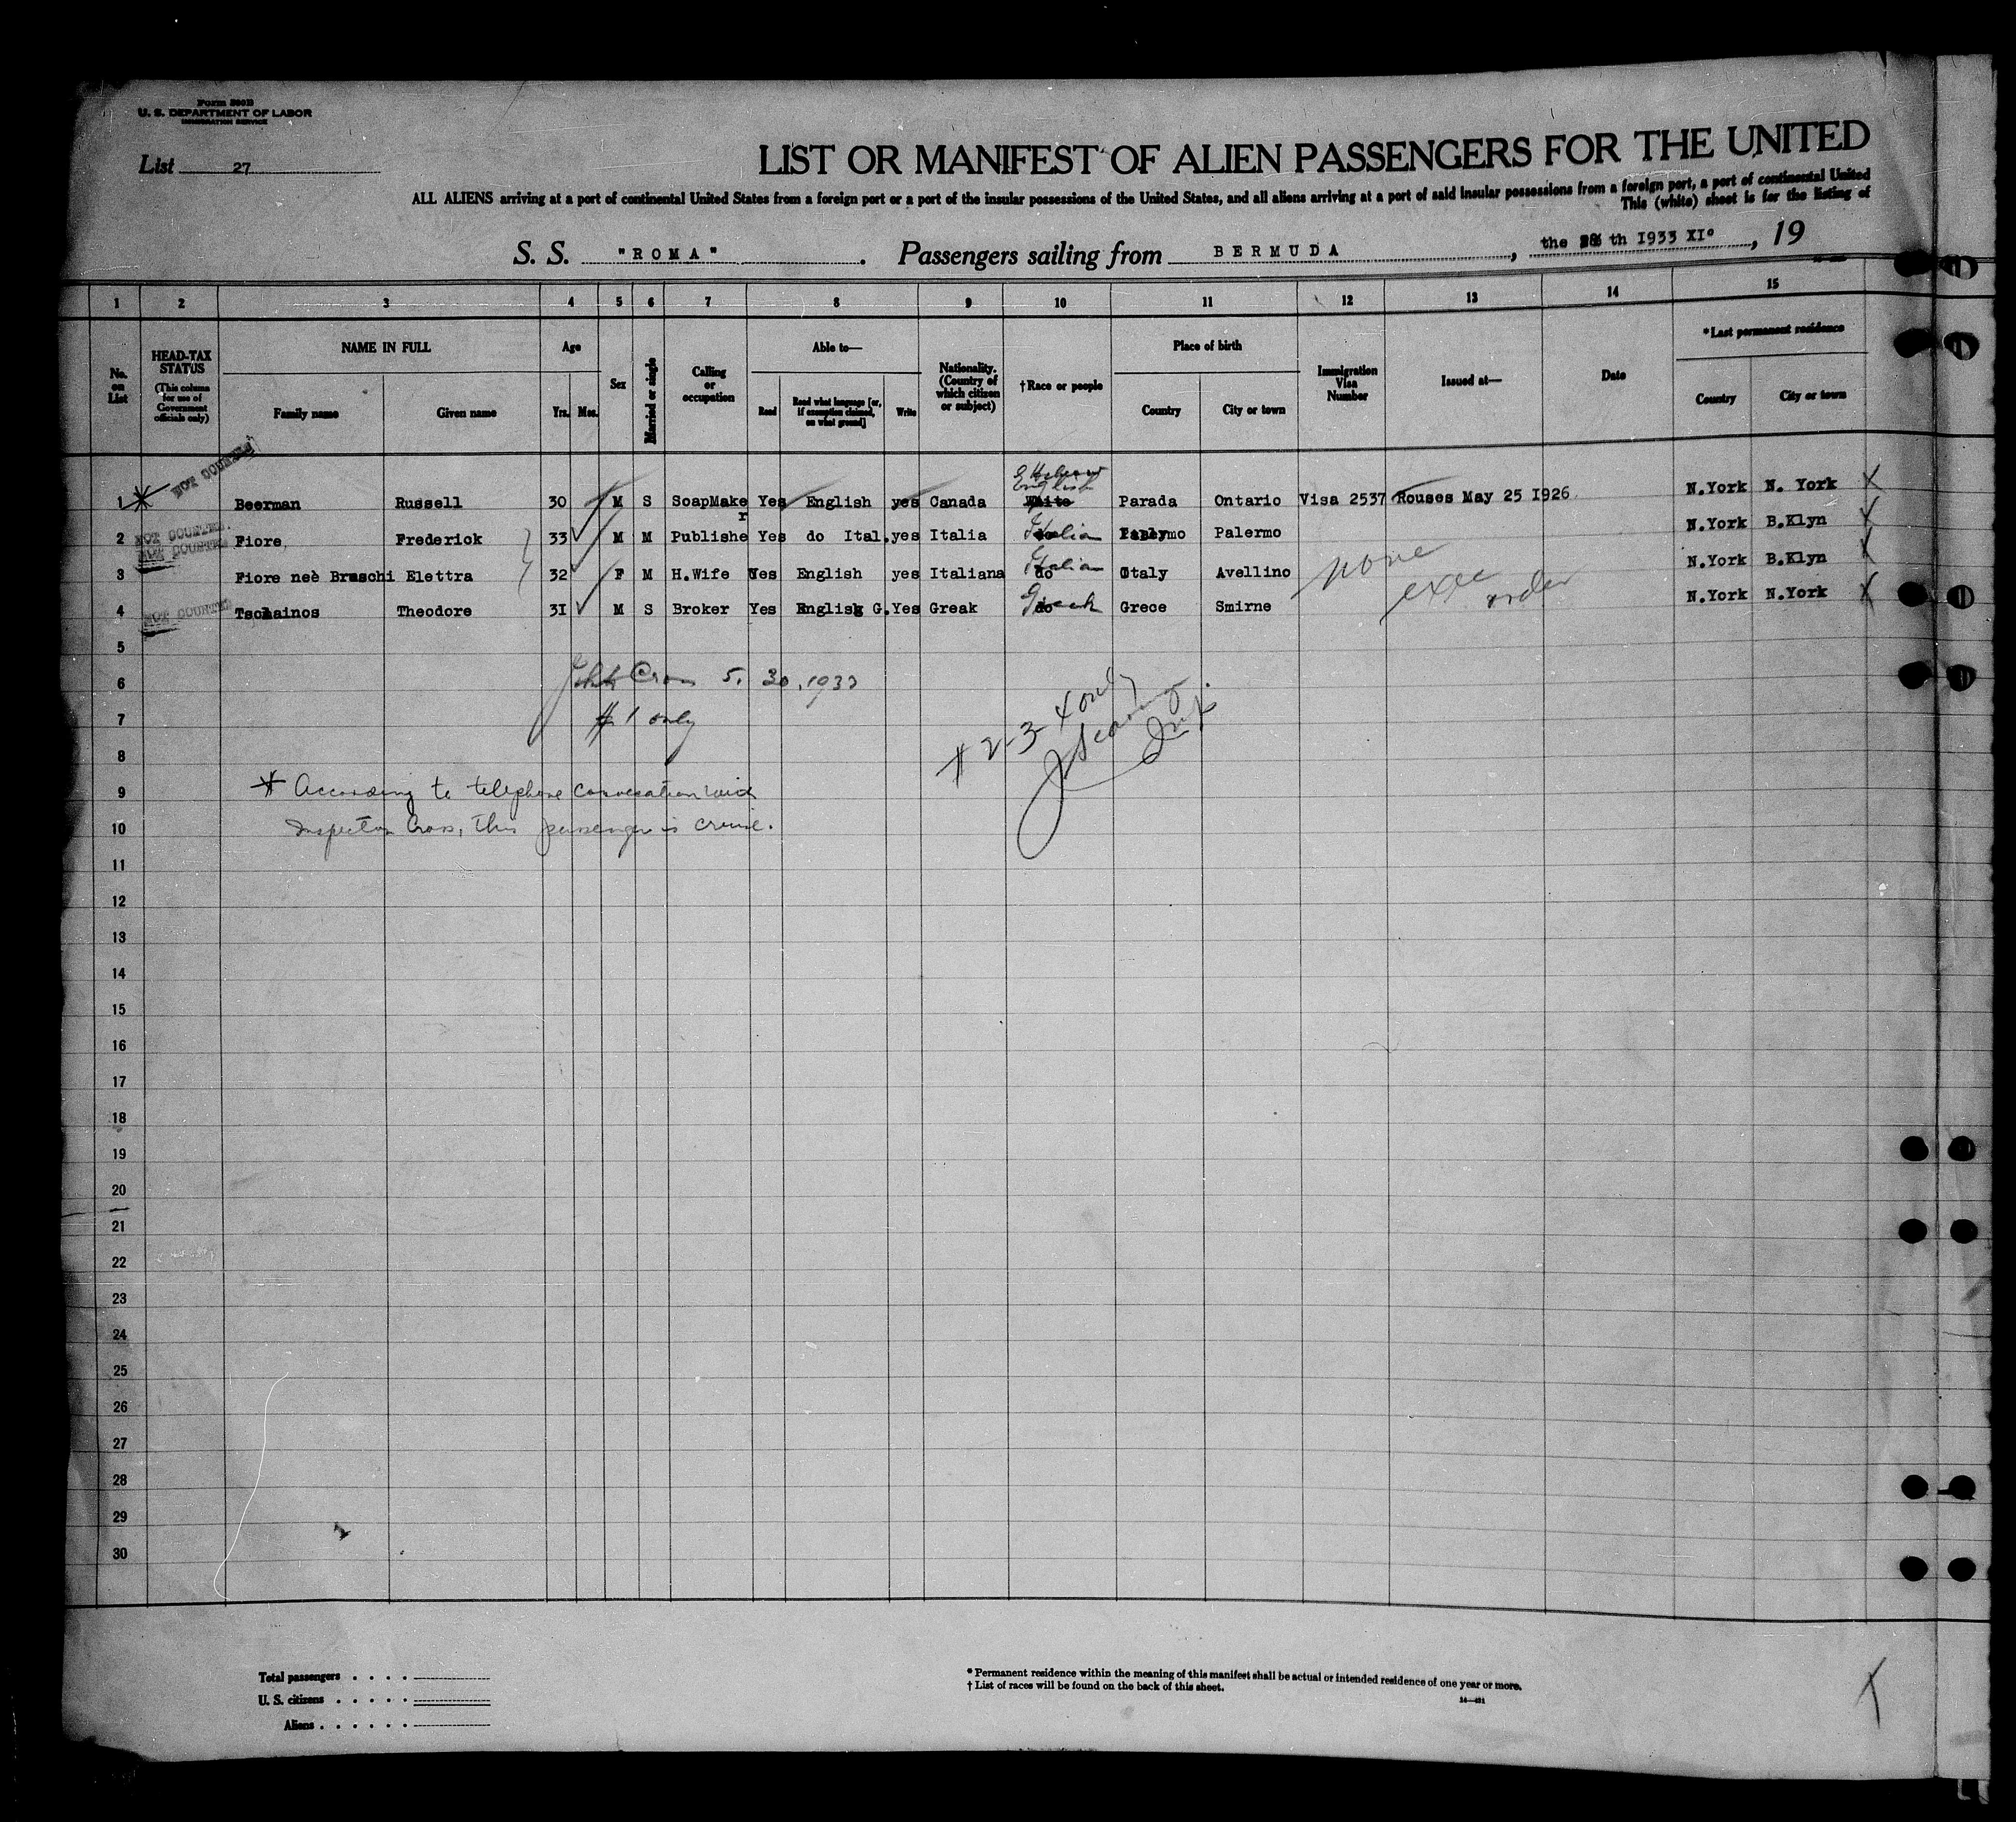 Form 500B
U. S. DEPARTMENT OF LABOR
IMMIGRATION SERVICE
List 27
LIST OR MANIFEST OF ALIEN PASSENGERS FOR THE UNITED
ALL ALIENS arriving at a port of continental United States from a foreign port or a port of the insular possessions of the United States, and all aliens arriving at a port of said insular possessions from a foreign port, a port of continental United
This (white) sheet is for the listing of
S. S. "ROMA". Passengers sailing from BERMUDA, the th 1933 XI°, 19
1 2 3 4 5 6 7 8 9 10 11 12 13 14 15
No. on List
HEAD-TAX STATUS
(This column for use of Government officials only)
NAME IN FULL
Family name Given name
Age
Yrs. Mos.
Sex
Married or single
Calling or occupation
Able to—
Read Read what language [or, if exemption claimed, on what ground] Write
Nationality. (Country of which citizen or subject)
†Race or people
Place of birth
Country City or town
Immigration Visa Number
Issued at—
Date
*Last permanent residence
Country City or town
NOT COUNTED
Hebrew
English
1 Beerman Russell 30 M S SoapMaker Yes English yes Canada White Parada Ontario Visa 2537 Rouses May 25 1926 N.York N. York X
NOT COUNTED
2 Fiore Frederick 33 M M Publishe Yes do Ital. yes Italia Italian Palermo N.York B.Klyn X
NOT COUNTED
3 Fiore neè Bruschi Elettra 32 F M H.Wife Yes English yes Italiana Italian Italy Avellino none N.York B.Klyn X
NOT COUNTED
4 Tschainos Theodore 31 M S Broker Yes English G. Yes Greak Greek Grece Smirne exec order N.York N.York X
5
6 John Cross 5. 30. 1933
7 # 1 only
# 2-3-4 only
8
9 * According to telephone conversation with
10 Inspector Cross, this passenger is cruise.
11
12
13
14
15
16
17
18
19
20
21
22
23
24
25
26
27
28
29
30
Total passengers . . . .
U. S. citizens . . . . .
Aliens . . . . . .
* Permanent residence within the meaning of this manifest shall be actual or intended residence of one year or more.
† List of races will be found on the back of this sheet.
X